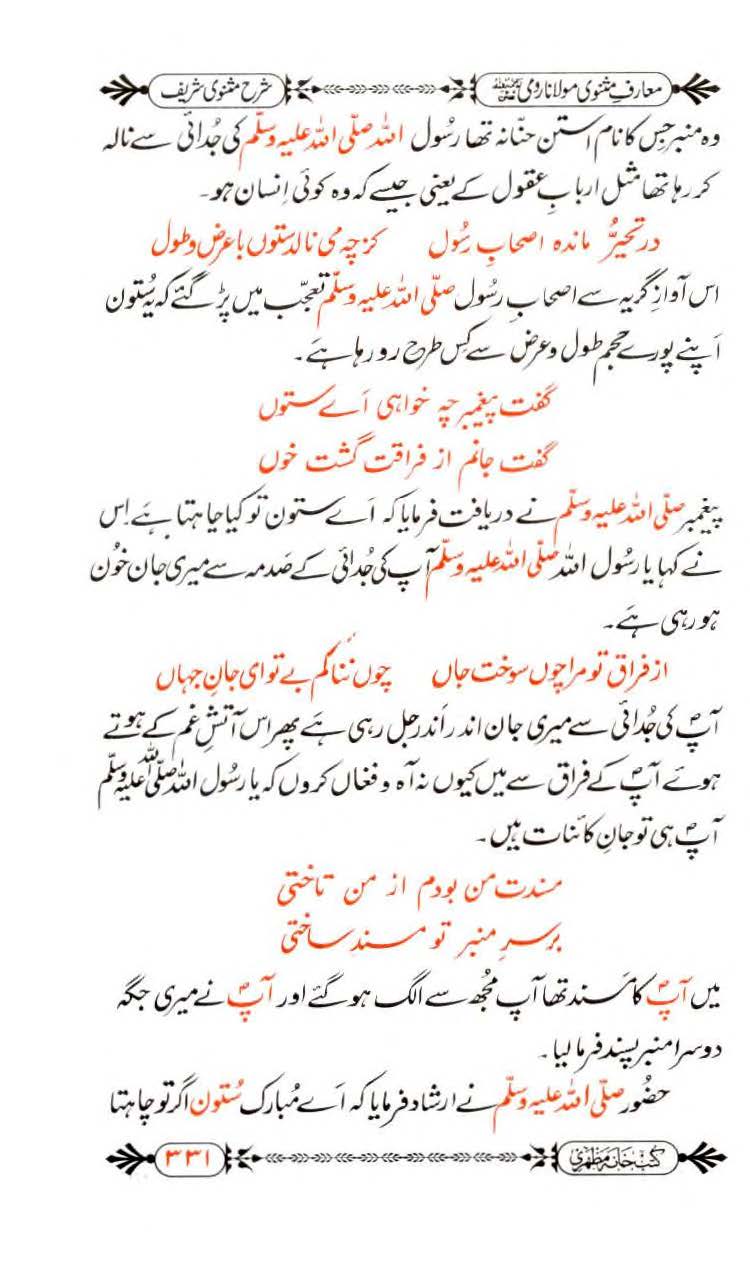 معارفِ مثنوی مولانا رومی رحمۃ اللہ علیہ
شرح مثنوی شریف
وہ منبر جس کا نام استن حنّانہ تھا رسُول اللہ صلّی اللہ علیہ وسلّم کی جُدائی سے نالہ
کر رہا تھا مثل اربابِ عقول کے یعنی جیسے کہ وہ کوئی اِنسان ہو۔
در تحیرُّ ماندہ اصحابِ رسُول کزچہ می نالد ستوں با عرض و طول
اس آوازِ گریہ سے اصحابِ رسُول صلّی اللہ علیہ وسلّم تعجّب میں پڑ گئے کہ یہ سُتون
اَپنے پورے حجم طول و عرض سے کِس طرح رو رہا ہے۔
گفت پیغمبر چہ خواہی اَے ستوں
گفت جانم از فراقت گشت خوں
پیغمبر صلّی اللہ علیہ وسلّم نے دریافت فرمایا کہ اَے ستون تو کیا چاہتا ہے اِس
نے کہا یا رسُول اللہ صلّی اللہ علیہ وسلّم آپ کی جُدائی کے صَدمہ سے میری جان خوُن
ہو رہی ہے۔
از فراق تو مرا چوں سوخت جاں چوں ننالم بے تو ای جانِ جہاں
آپؐ کی جُدائی سے میری جان اندر اَندر جل رہی ہے پھر اس آتشِ غم کے ہوتے
ہوئے آپؐ کے فراق سے میں کیوں نہ آہ و فغاں کروں کہ یا رسُول اللہ صلّی اللہ علیہ وسلّم
آپؐ ہی تو جانِ کائنات ہیں۔
مسندت من بودم از من تاختی
بر سرِ منبر تو مسند ساختی
میں آپؐ کا مَسند تھا آپ مجُھ سے الگ ہو گئے اور آپؐ نے میری جگہ
دوسرا منبر پسند فرما لیا۔
حضُور صلّی اللہ علیہ وسلّم نے ارشاد فرمایا کہ اَے مُبارک سُتون اگر تو چاہتا
کتب خانہ مظہری
۳۳۱